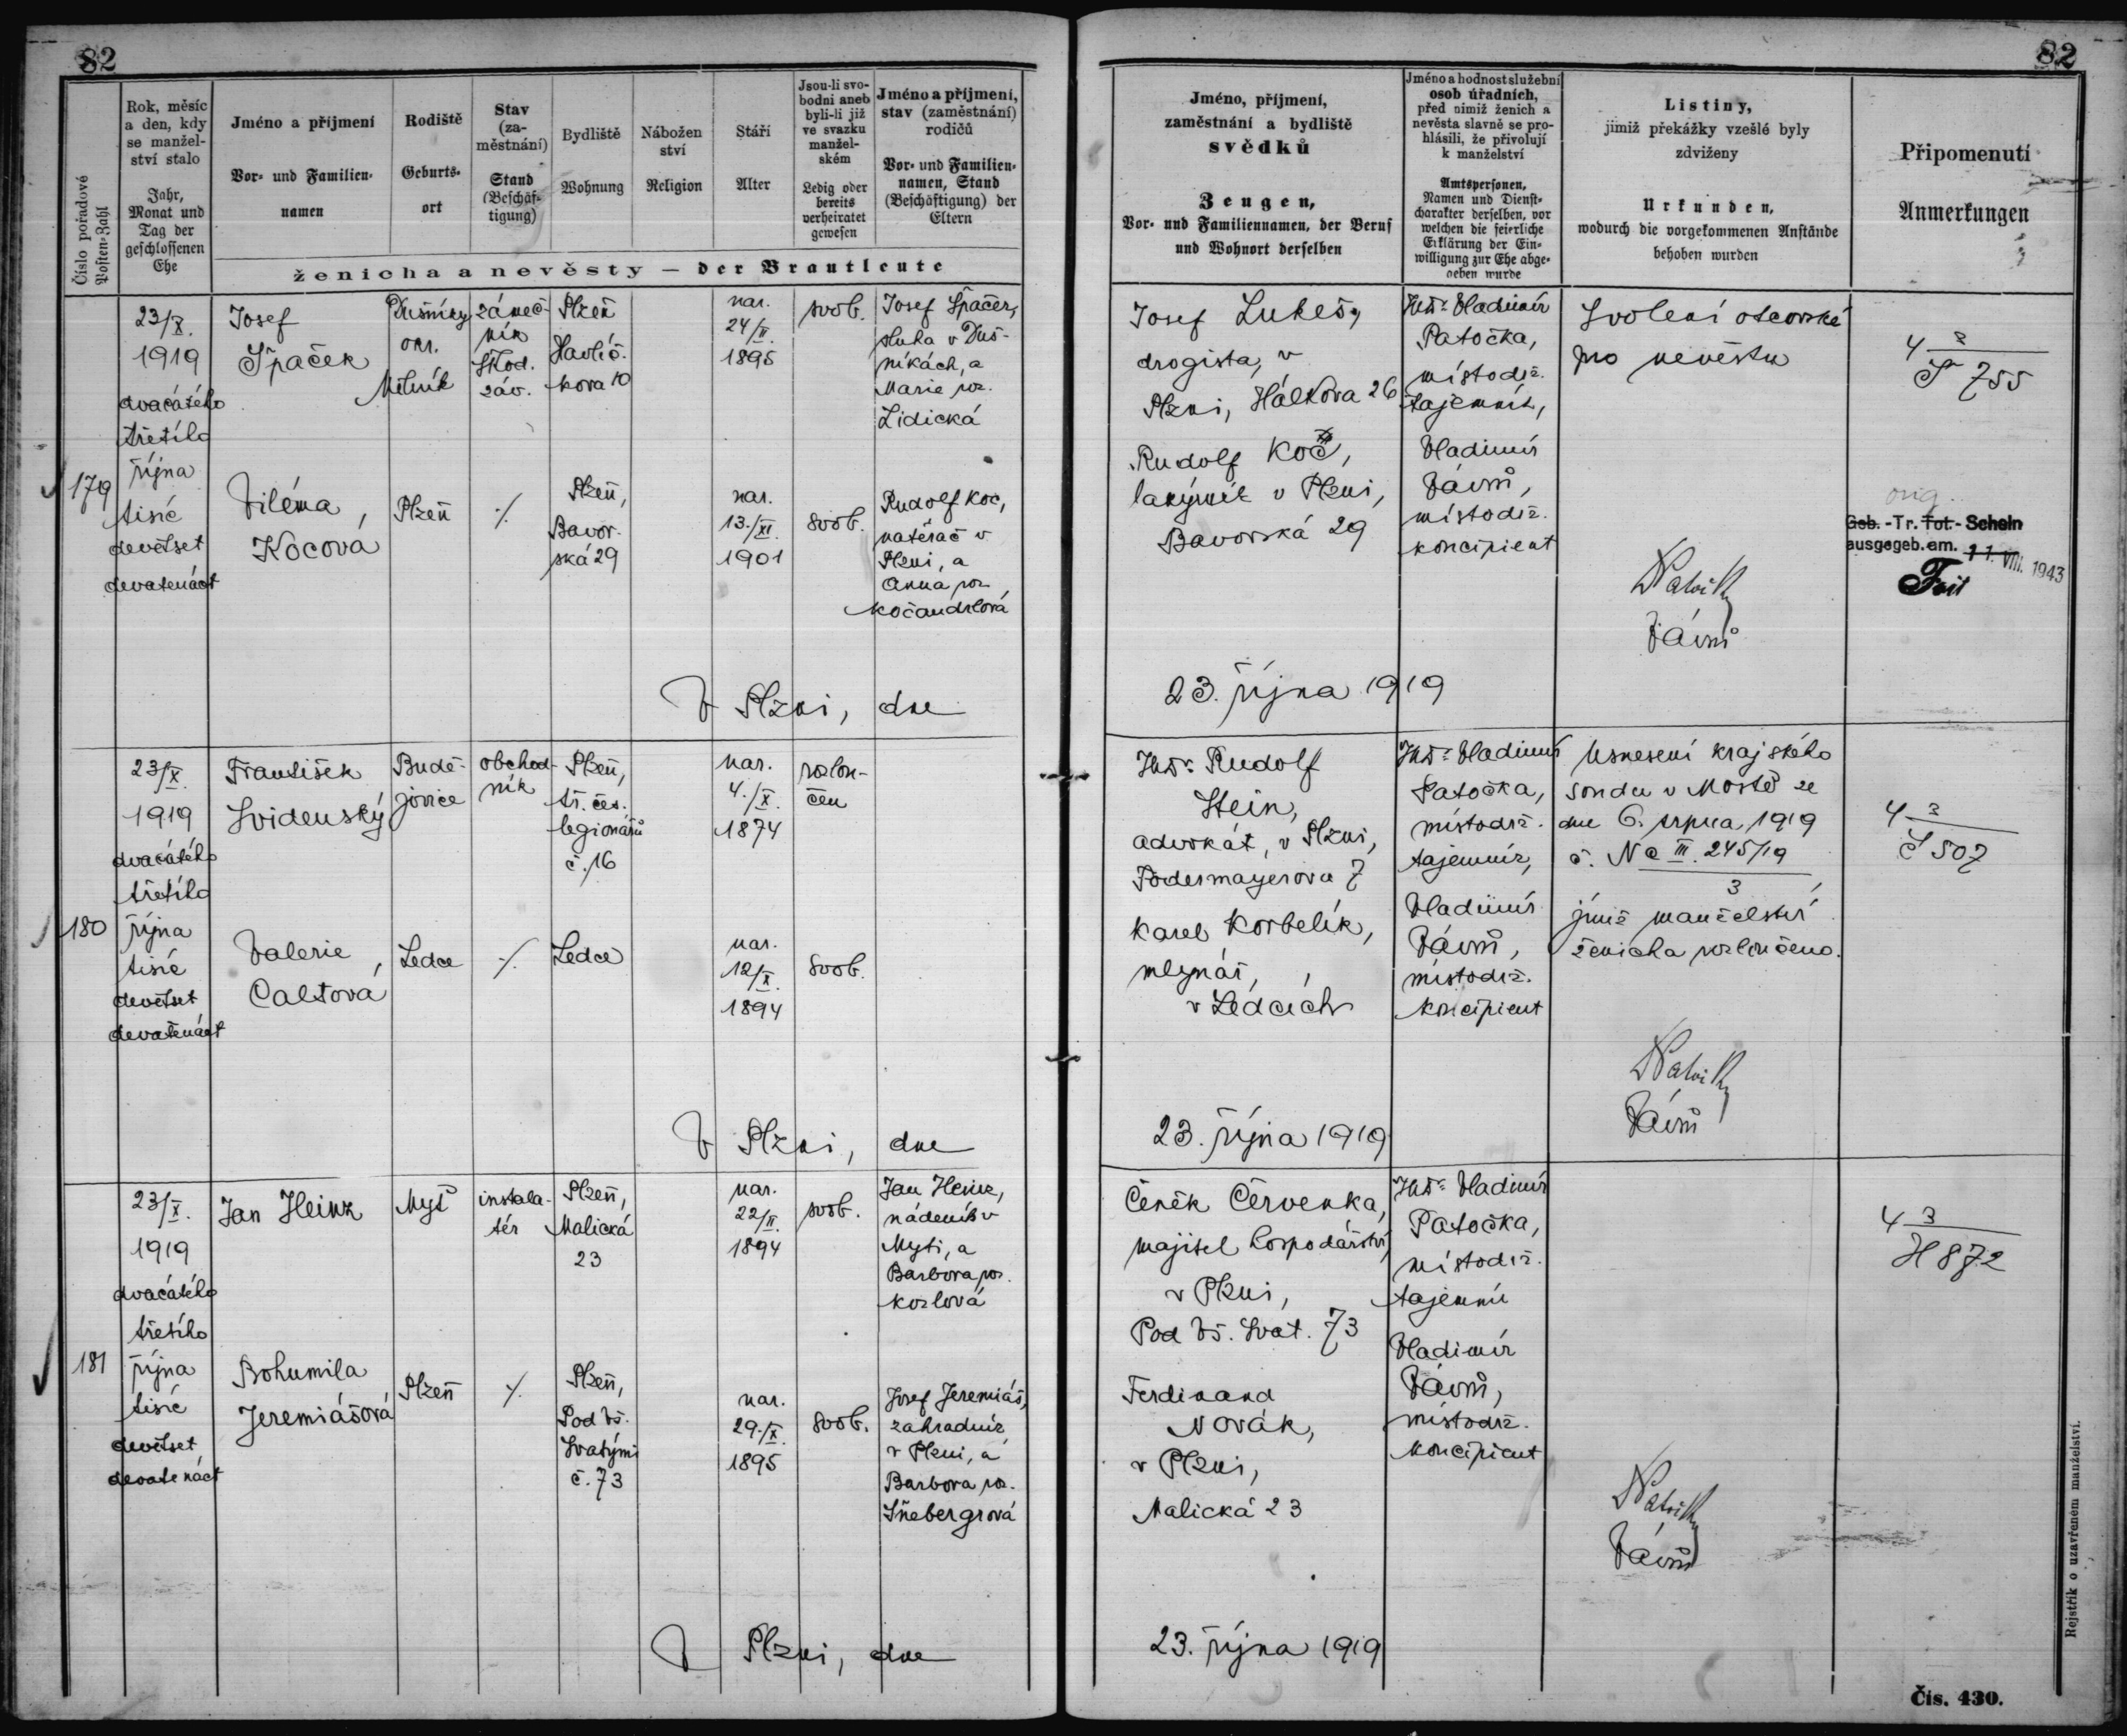 82
Číslo pořadové
Posten-Zahl
Rok, měsíc
a den, kdy
se manžel-
ství stalo
Jahr,
Monat und
Tag der
geschlossenen
Ehe
Jméno a příjmení
Vor- und Familien-
namen
Rodiště
Geburts-
ort
Stav
(za-
městnání)
Stand
(Beschäf-
tigung)
Bydliště
Wohnung
Nábožen
ství
Religion
Stáří
Alter
Jsou-li svo-
bodni aneb
byli-li již
ve svazku
manžel-
ském
Ledig oder
bereits
verheiratet
gewesen
Jméno a příjmení,
stav (zaměstnání)
rodičů
Vor- und Familien-
namen, Stand
(Beschäftigung) der
Eltern
ženicha a nevěsty — der Brautleute
179
23/X.
1919
dvacátého
třetího
října
tisíc
devětset
devatenáct
Josef
Špaček
Dušníky
okr.
Mělník
zámeč-
ník
Škod.
záv.
Plzeň
Havlíč-
kova 10
nar.
24/II.
1895
svob.
Josef Špaček,
sluha v Duš-
níkách, a
Marie roz.
Lidická
Viléma,
Kočová
Plzeň
./.
Plzeň,
Bavor-
ská 29
nar.
13./XI.
1901
svob.
Rudolf Koč,
natěrač v
Plzni, a
Anna roz.
Kočandrlová
V Plzni, dne
180
23/X.
1919
dvacátého
třetího
října
tisíc
devětset
devatenáct
František
Svidenský
Budě-
jovice
obchod-
ník
Plzeň,
tř. čes.
legionářů
č. 16
nar.
4./X.
1874
rozlou-
čen
Valerie,
Caltová
Ledce
./.
Ledce
nar.
12/X.
1894
svob.
V Plzni, dne
181
23/X.
1919
dvacátého
třetího
října
tisíc
devětset
devatenáct
Jan Heinz
Myť
instala-
tér
Plzeň,
Malická
23
nar.
22/II.
1894
svob.
Jan Heinz,
nádeník v
Myti, a
Barbora roz.
Kozlová
Bohumila
Jeremiášová
Plzeň
./.
Plzeň,
Pod Vš.
Svatými
č. 73
nar.
29./X.
1895
svob.
Josef Jeremiáš,
zahradník
v Plzni, a
Barbora roz.
Šnebergrová
V Plzni, dne
82
Jméno, příjmení,
zaměstnání a bydliště
svědků
Zeugen,
Vor- und Familiennamen, der Beruf
und Wohnort derselben
Jméno a hodnost služební
osob úřadních,
před nimiž ženich a
nevěsta slavně se pro-
hlásili, že přivolují
k manželství
Amtspersonen,
Namen und Dienst-
charakter derselben, vor
welchen die feierliche
Erklärung der Ein-
willigung zur Ehe abge-
geben wurde
Listiny,
jimiž překážky vzešlé byly
zdviženy
Urkunden,
wodurch die vorgekommenen Anstände
behoben wurden
Připomenutí
Anmerkungen
Josef Lukeš,
drogista, v
Plzni, Hálkova 26
Rudolf Koč,
lakýrník v Plzni,
Bavorská 29
JUDr Vladimír
Patočka,
místodrž.
tajemník,
Vladimír
Vávrů,
místodrž.
koncipient
Svolení otcovské
pro nevěstu
Vávrů
4 3
Š 755
orig.
Geb.-Tr. Tot.-Schein
ausgegeb. am. 11. VIII. 1943
23. října 1919
JUDr. Rudolf
Stein,
advokát, v Plzni,
Podermayerova 7
Karel Korbelík,
mlynář,
v Ledcích
JUDr Vladimír
Patočka,
místodrž.
tajemník,
Vladimír
Vávrů,
místodrž.
koncipient
Usnesení krajského
soudu v Mostě ze
dne 6. srpna 1919
č. Nc III. 245/19
3
jímž manželství
ženicha rozloučeno.
Vávrů
4 3
S 507
23. října 1919
Čeněk Červenka,
majitel hospodářství,
v Plzni,
Pod Vš. Svat. 73
Ferdinand
Novák,
v Plzni,
Malická 23
JUDr Vladimír
Patočka,
místodrž.
tajemník
Vladimír
Vávrů,
místodrž.
koncipient
Vávrů
4 3
H 872
23. října 1919
Rejstřík o uzavřeném manželství.
Čís. 430.